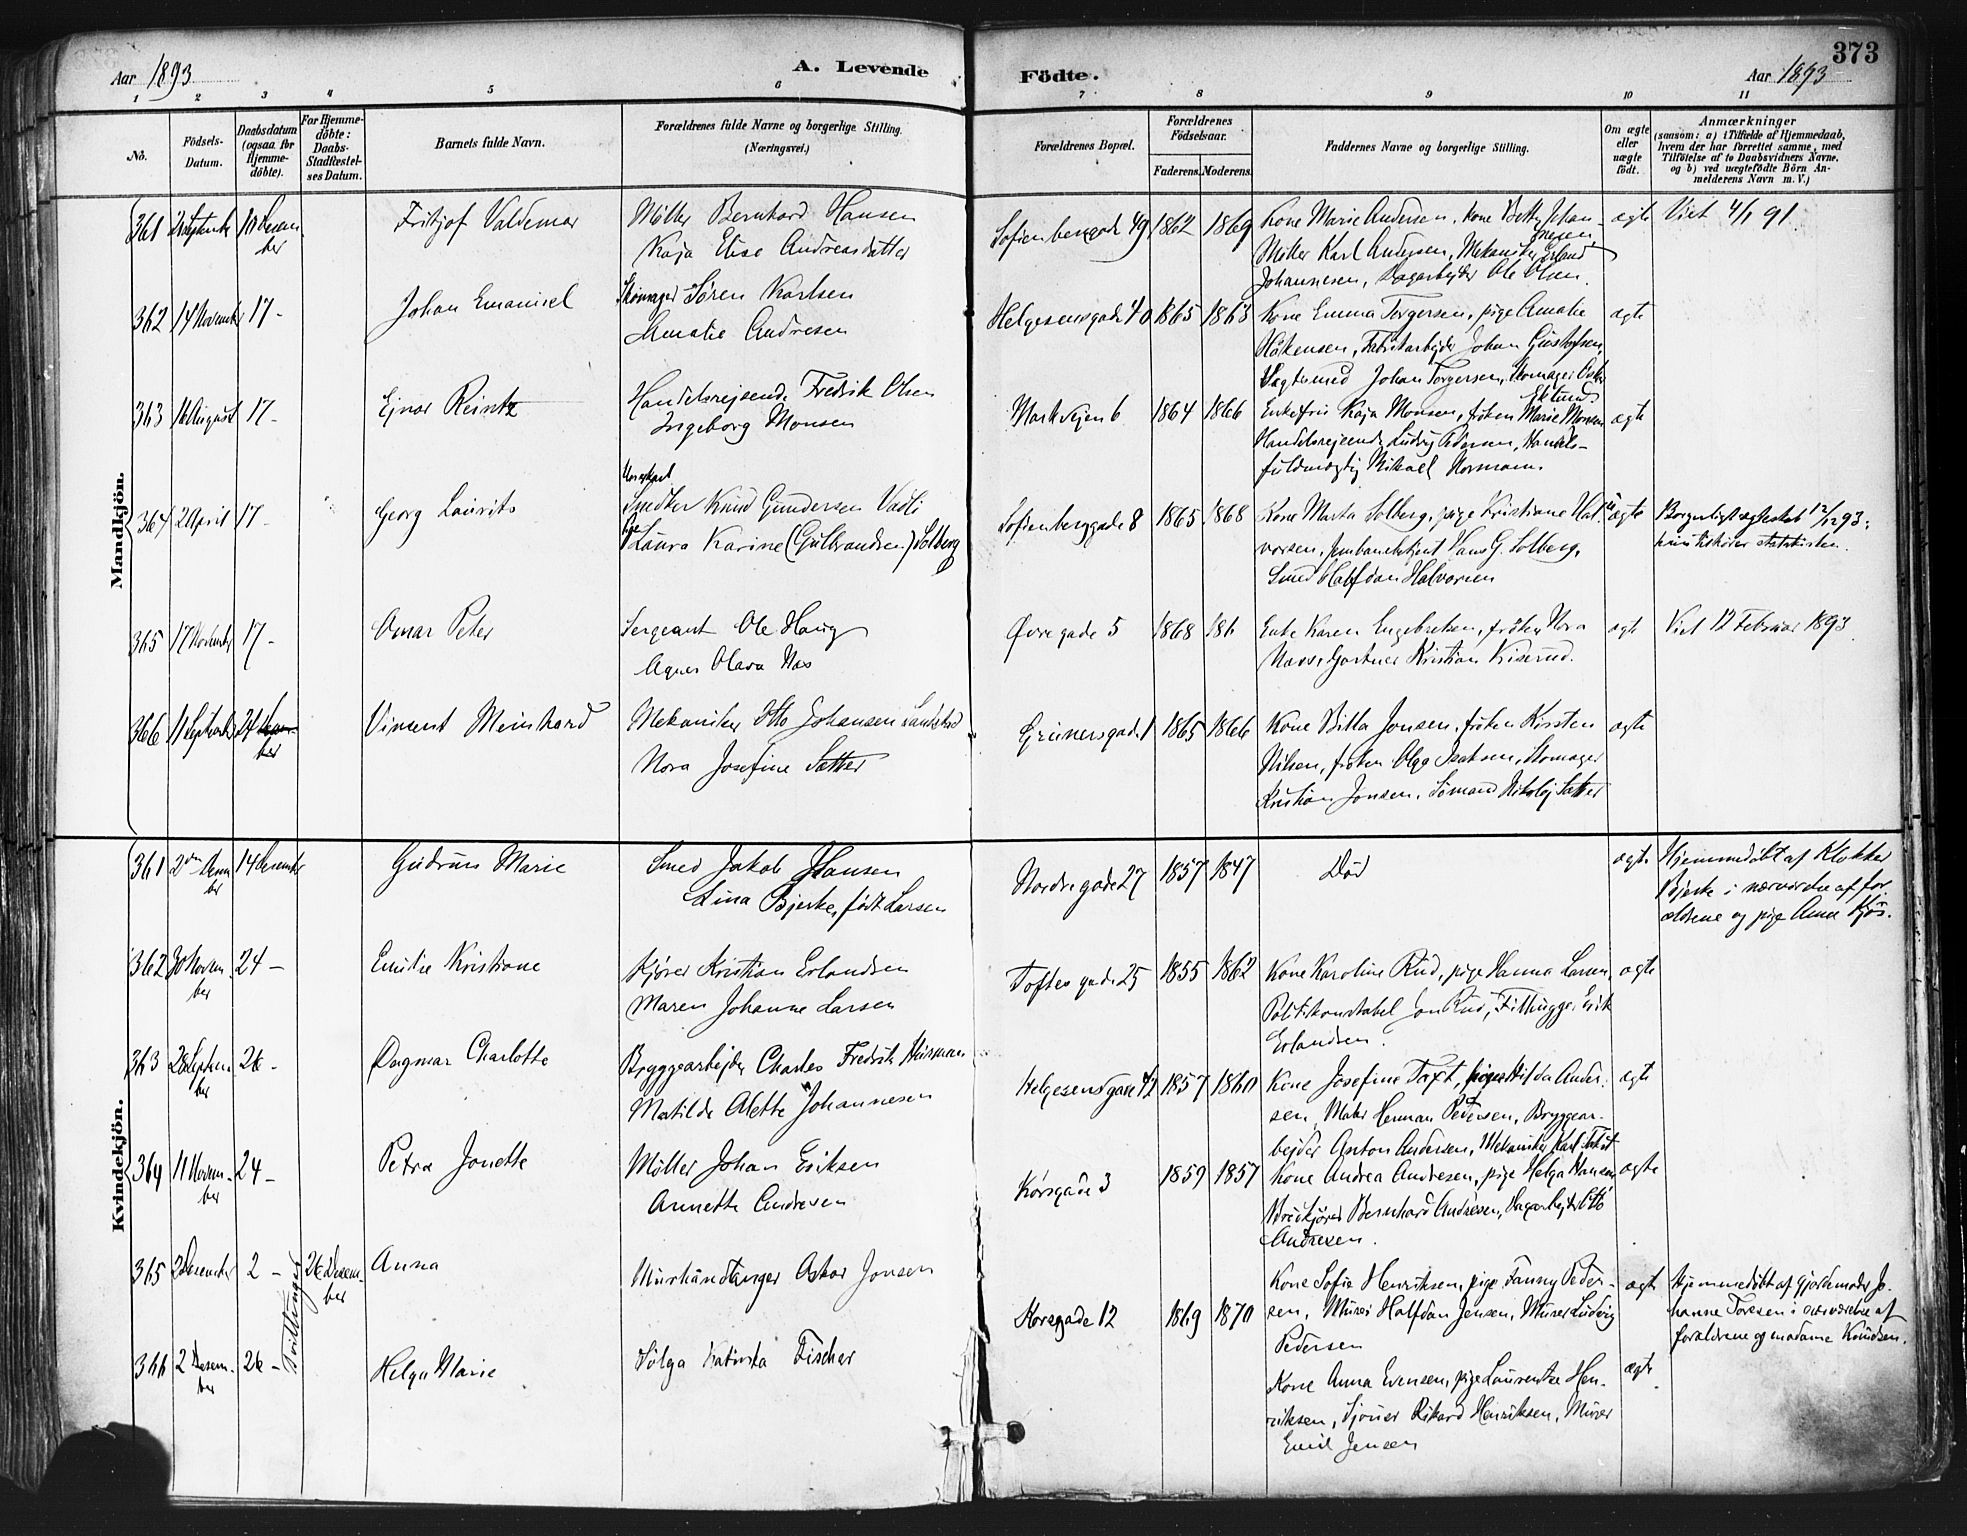 Aar 1893
A. Levende
Födte.
Aar 1893
373
1 2 3 4 5 6 7 8 9 10 11
No.
Födsels-Datum.
Daabsdatum (ogsaa for Hjemme-döbte).
For Hjemme-döbte: Daabs-Stadfæstel-ses Datum.
Barnets fulde Navn.
Forældrenes fulde Navne og borgerlige Stilling. (Næringsvei.)
Forældrenes Bopæl.
Forældrenes Födselsaar.
Faderens. Moderens.
Faddernes Navne og borgerlige Stilling.
Om ægte eller uægte födt.
Anmærkninger
(saasom: a) i Tilfælde af Hjemmedaab,
hvem der har forrettet samme, med
Tilföielse af to Daabsvidners Navne,
og b) ved uægtefödte Börn An-
melderens Navn m. V.)
Mandkjön.
361 Fritjof Valdemar Møller Bernhard Hansen Sofienberggade 49 1862 1869 Kone Marie Andersen, Kone Betty Johan- ægte Viet 4/1 91
10 Desember Kaja Elise Andreasdatter nesen,
Møller Karl Andersen, Mekaniker Erland
Johannesen, Dagarbejder Ole Olsen.
362 14 November 17- Johan Emanuel Skomager Søren Karlsen Helgesensgade 40 1865 1863 Kone Emma Torgersen, pige Amalie ægte
Amalie Andresen Håkensen, Fabrikarbejder Johan Gustafsen,
Vagtmed Johan Torgersen, Skomager Oskar
363 16 August 17- Ejnar Reintz Handelsrejsende Fredrik Olsen Markvejen 6 1864 1866 Enkefru Kaja Monsen, frøken Marie Monsen ægte
Ingeborg Monsen Handelsrejsende Ludvig Pedersen, Handels-
fuldmægtig Mikael Normann.
364 2 April 17- Georg Laurits Snedker Knud Gundersen Vadli Sofienberggade 8 1865 1868 Kone Marta Solberg, pige Kristiane Hal- ægte Borgerligt ægteskab 12/12 93;
Pige Laura Karine (Gulbrandsen) Solberg vorsen, Jernbanebetjent Hans G. Solberg, statskirken.
Smed Halfdan Halvorsen
365 17 November 17- Omar Peter Sergeant Ole Haug Øvregade 5 1868 186 Enke Karen Engebretsen, frøken Nora ægte Viet 12 Februar 1893
Agnes Olava Næs Næss, Gartner Kristian Kiserud.
366 11 September 24 Vincent Meinhard Mekaniker Otto Johansen Grünersgade 1 1865 1866 Kone Bitta Jonsen, frøken Kirsten ægte
Nora Josefine Sætter Nilsen, frøken Olga Isaksen, Skomager
Kristian Jonsen, Sømand Nikolaj Sætter
Kvindekjön.
361 14 Desember Gudrun Marie Smed Jakob Hansen Nordregade 27 1857 1847 Død ægte Hjemmedøbt af Klokker
Lina Bjerke, født Larsen Bjerke i nærværelse af for-
ældrene og pige Anna Kjøs.
362 November 24- Emilie Kristiane Kjører Kristian Erlandsen Toftesgade 25 1855 1862 Kone Karoline Rud, pige Hanna Larsen, ægte
Maren Johanne Larsen Politikonstabel Jon Rud, Filhugger Erik
Erlandsen.
363 28 September 26- Dagmar Charlotte Bryggearbejder Charles Fredrik Helgesensgade 42 1857 1860 Kone Josefine Toft, pige Hilda Ander- ægte
Matilde Alette Johannesen sen, Maler Herman Pedersen, Bryggear-
bejder Anton Andersen, Mekaniker Karl
364 11 November 24- Petra Jonette Møller Johan Eriksen Korsgade 3 1859 1857 Kone Andrea Andresen, pige Helga Hansen ægte
Annette Andresen Bernhard Andresen, Dagarbejder Otto
Andresen.
365 2 Desember 2- 26 Desember Anna Murhåndlanger Oskar Jonsen Korsgade 12 1869 1870 Kone Sofie Henriksen, pige Fanny Peder- ægte Hjemmedøbt af Gjordemoder Jo-
sen, Murer Halfdan Jensen, Murer Ludvig hanne Toresen i nærværelse af
Pedersen forældrene og madame Knudsen.
Tvillinger
366 2 Desember 26- Helga Marie Solga Katinka Fischer Kone Anna Evensen, pige Laurentze Hen- ægte
riksen, Rikard Henriksen, Murer
Emil Jensen